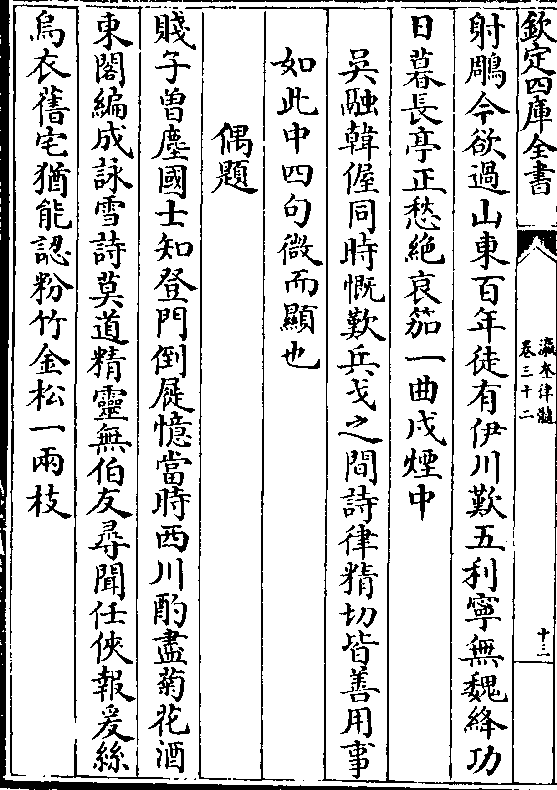 欽定四庫全書
瀛奎律髓
卷三十二
十二
射鵰今欲過山東百年徒有伊川歎五利寧無魏絳功
日暮長亭正愁絶哀笳一曲戍煙中
吳融韓偓同時慨歎兵戈之間詩律精切皆善用事
如此中四句微而顯也
偶題
賤子曾塵國士知登門倒屣憶當時西川酌盡菊花酒
東閣編成詠雪詩莫道精靈無伯友尋聞任俠報爰絲
烏衣舊宅猶能認粉竹金松一兩枝